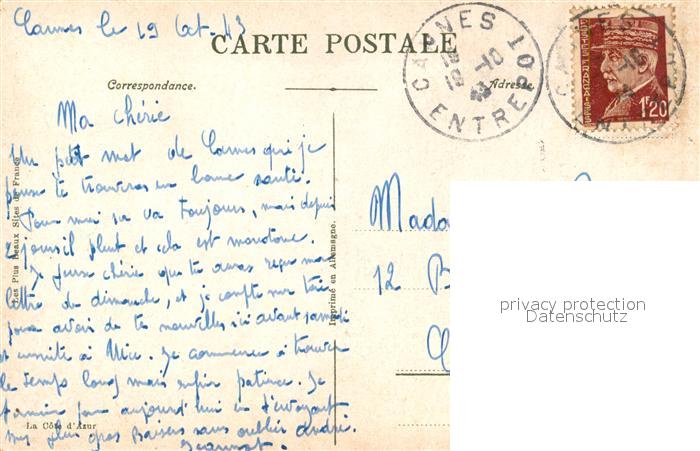 Cannes le 19 Oct. 43
CARTE POSTALE
Correspondance.
Adresse
CANNES ENTREPOT
19 -10
43
POSTES FRANÇAISES
1F20
Ma chérie
Un petit mot de Cannes qui je
pense te trouvera en bonne santé.
Pour moi sa va toujours, mais depuis
2 jours il pleut et cela est monotone.
Je pense chérie que tu auras reçu ma
lettre de dimanche, et je compte sur toi
pour avoir de tes nouvelles ici avant samedi
et ensuite à Nice. Je commence à trouver
le temps long mais enfin patience. Je
termine pour aujourd'hui en t'envoyant
mes plus gros Baisers sans oublier André.
Les Plus Beaux Sites de France
La Côte d'Azur
Imprimé en Allemagne.
Mada
12 B
privacy protection
Datenschutz